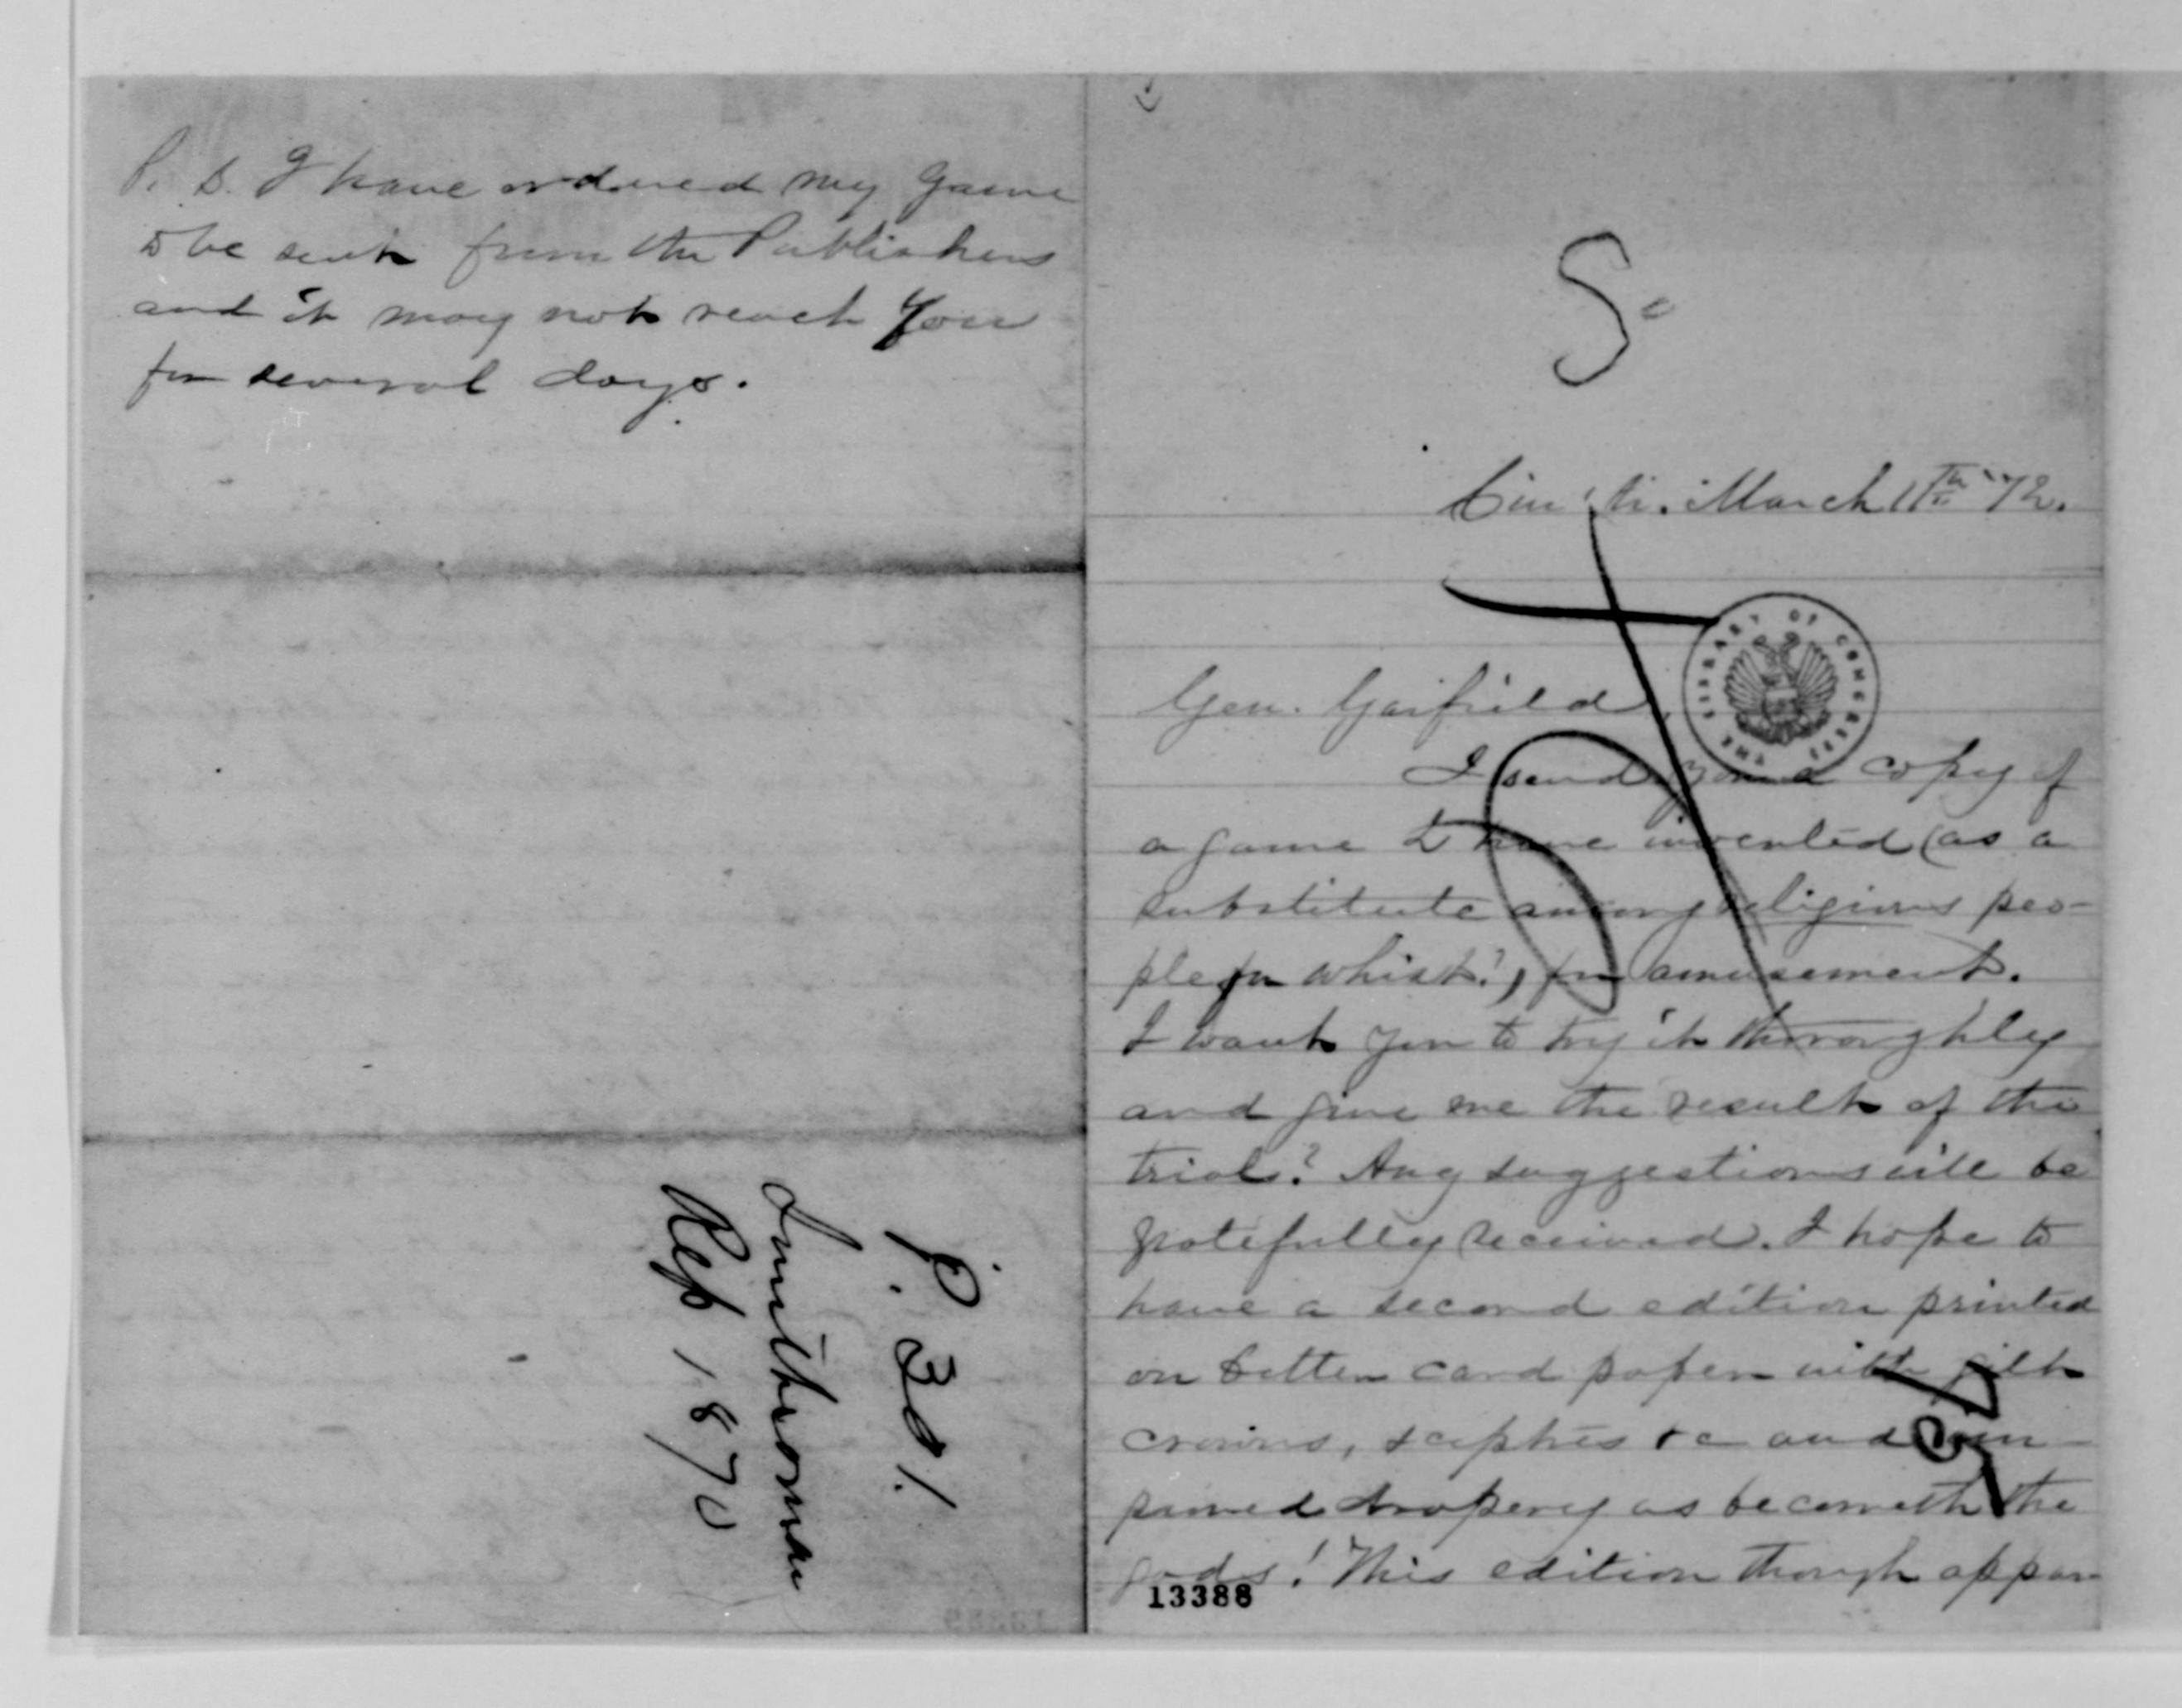 P. S. I have ordered my Game
to be sent from the Publishers
and it may not reach You
for several days.
P. 301.
Smithsonian
Rep 1870
S
Cin'ti. March 11th '72.
THE LIBRARY OF CONGRESS
Gen. Garfield,
I send you a copy of
a game I have invented (as a
substitute among religious peo-
ple for whist?) for amusement.
I want you to try it thoroughly
and give me the result of the
trial? Any suggestions will be
gratefully received. I hope to
have a second edition printed
on better card paper with gilt
crowns, scepters &c and
drapery as becometh the
gods! This edition though appar-
13388